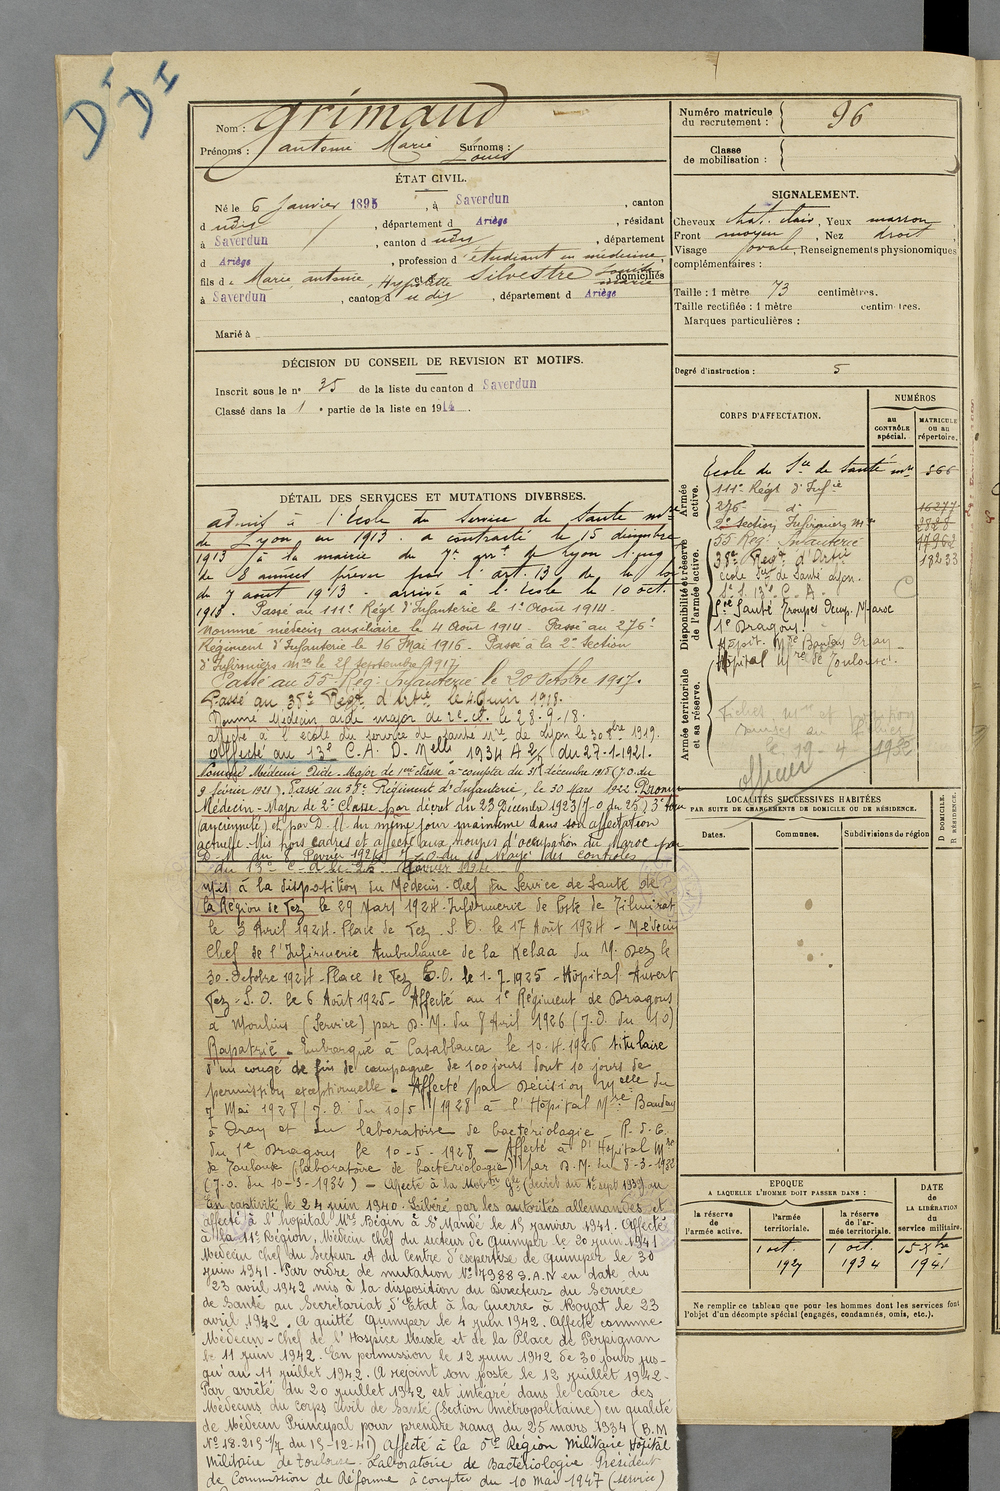 DI
DI
Nom : Grimaud
Prénoms : antoine Marie Surnoms :
Louis
ÉTAT CIVIL.
Né le 6 Janvier 1895, à Saverdun, canton
d udit, département d Ariège, résidant
à Saverdun, canton d udit, département
d Ariège, profession d étudiant en médecine,
fils d e Marie, antoine, Hypolitte et de Silvestre domiciliés
à Saverdun, canton d udit, département d Ariège
Marié à
DÉCISION DU CONSEIL DE REVISION ET MOTIFS.
Inscrit sous le n° 35 de la liste du canton d Saverdun
Classé dans la 1e partie de la liste en 1914.
DÉTAIL DES SERVICES ET MUTATIONS DIVERSES.
admis à l'Ecole du Service de Santé mre
de Lyon en 1913. a contracté le 15 décembre
1913 à la mairie du 7e arrt de Lyon l'eng
de 8 années prévu par l'art. 13 de la loi
du 7 aout 1913 - arrivé à l'école le 10 oct.
1913. Passé au 111e Régt d'Infanterie le 1er Août 1914.
Nommé médecin auxiliaire le 4 Août 1914. Passé au 276e
Régiment d'Infanterie le 16 Mai 1916. Passé à la 2e Section
d'Infirmiers Mres le 25 septembre 1917
Passé au 55e Reg. Infanterie le 20 Octobre 1917.
Passé au 38e Regt d'Artie le 4 Juin 1918.
Nommé Médecin aide major de 2e cl. le 28-9-18.
affecté à l'école du service de santé Mre de Lyon le 30 8bre 1919.
Affecté au 13e C.A. D. Melle 1934 A 2/7 du 27-1-1921.
Nommé Médecin Aide-Major de 1ère classe à compter du 31 décembre 1915 (J.O. du
9 février 1921). Passé au 38e Régiment d'Infanterie, le 30 Mars 1922 Promu
Médecin-Major de 2e Classe par décret du 23 Décembre 1923 (J.O. du 25) 3e tour
(ancienneté) et par D.M. du même jour maintenu dans son affectation
actuelle. Mis hors cadres et affecté aux troupes d'occupation du Maroc par
D.M. du 8 Février 1924 J.O. du 10 rayé des contrôles
du 13e C.A. le 25 février 1924
Mis à la disposition du Médecin-Chef du Service de Santé de
la Région de Fez le 29 Mars 1924. Infirmerie de Poste de Tilmirat
le 3 Avril 1924. Place de Fez. S.O. le 17 Août 1924 - Médecin
Chef de l'Infirmerie Ambulance de la Kelaa du M. Dez le
30. Octobre 1924. Place de Fez S.O. le 1.7.1925 - Hôpital Auvert
Fez. S.O. le 6 Août 1925 - Affecté au 1e Régiment de Dragons
à Moulins (Service) par D.M. du 8 Avril 1926 (J.O. du 10)
Rapatrié. Embarqué à Casablanca le 10.4.1926 titulaire
d'un congé de fin de campagne de 100 jours dont 10 jours de
permission exceptionnelle. Affecté par Décision Mielle du
7 Mai 1928 (J.O. du 10/5/1928 à l'Hôpital Mre Baudens
à Oran et du laboratoire de bactériologie - R.d.C.
du 1e Dragons le 10-5-1928 - Affecté à l'Hôpital Mre
de Toulouse (laboratoire de bactériologie) par D.M. du 8-3-1932
(J.O. du 10-3-1932) - Affecté à la Mobon Gle (décret du 1er sept 1939) au
En captivité le 24 juin 1940. Libéré par les autorités allemandes et
affecté à l'hôpital Mre Bégin à St Mandé le 15 janvier 1941. Affecté
à la 11e Région, Médecin chef du secteur de Quimper le 20 juin 1941
Médecin Chef du Secteur et du Centre d'expertise de Quimper le 30
juin 1941. Par ordre de mutation N° 7988 S.A.N en date du
23 avril 1942 mis à la disposition du Directeur du Service
de Santé au Secrétariat d'Etat à la Guerre à Royat le 23
avril 1942. A quitté Quimper le 4 juin 1942. Affecté comme
Médecin-Chef de l'Hospice Mixte et de la Place de Perpignan
le 11 juin 1942. En permission le 12 juin 1942 de 30 jours jus-
qu'au 11 juillet 1942. A rejoint son poste le 12 juillet 1942.
Par arrêté du 20 juillet 1942 est intégré dans le cadre des
Médecins du corps Civil de Santé (Section métropolitaine) en qualité
de Médecin Principal pour prendre rang du 25 mars 1934 (B.M
N° 18.215 1/7 du 15-12-41) Affecté à la 5e Région Militaire Hôpital
Militaire de Toulouse. Laboratoire de Bactériologie. Président
de Commission de Réforme à compter du 10 Mai 1947 (service)
Numéro matricule du recrutement : 96
Classe de mobilisation :
SIGNALEMENT.
Cheveux chat. clair, Yeux marron
Front moyen, Nez droit
Visage ovale, Renseignements physionomiques
complémentaires :
Taille : 1 mètre 73 centimètres.
Taille rectifiée : 1 mètre centimètres.
Marques particulières :
Degré d'instruction : 5
CORPS D'AFFECTATION.
NUMÉROS
AU CONTRÔLE spécial.
MATRICULE OU AU répertoire.
Armée active.
Disponibilité et réserve de l'armée active.
Armée territoriale et sa réserve.
Ecole du Sce de Santé mre 566
111e Régt d'Infie
276e d° 16277
2e Section Infirmiers Mres 2828
55 Reg. Infanterie 17962
38e Regt d'Artie 18233
école Sce de Santé Lyon.
S.S. 13e C.A. C
Sce Santé Troupes Occup. Maroc
1e Dragons.
Hôpit. Mre Baudens Oran
Hôpital Mre de Toulouse.
Fiches, Mle et
le 19-4-1932
officier
LOCALITÉS SUCCESSIVES HABITÉES
PAR SUITE DE CHANGEMENTS DE DOMICILE OU DE RÉSIDENCE.
Dates.
Communes.
Subdivisions de région
D DOMICILE.
R RÉSIDENCE.
EPOQUE
A LAQUELLE L'HOMME DOIT PASSER DANS :
la réserve de l'armée active.
l'armée territoriale.
la réserve de l'armée territoriale.
DATE de LA LIBÉRATION du service militaire.
1 oct. 1927
1 oct. 1934
15 Xbre 1941
Ne remplir ce tableau que pour les hommes dont les services font
l'objet d'un décompte spécial (engagés, condamnés, omis, etc.).